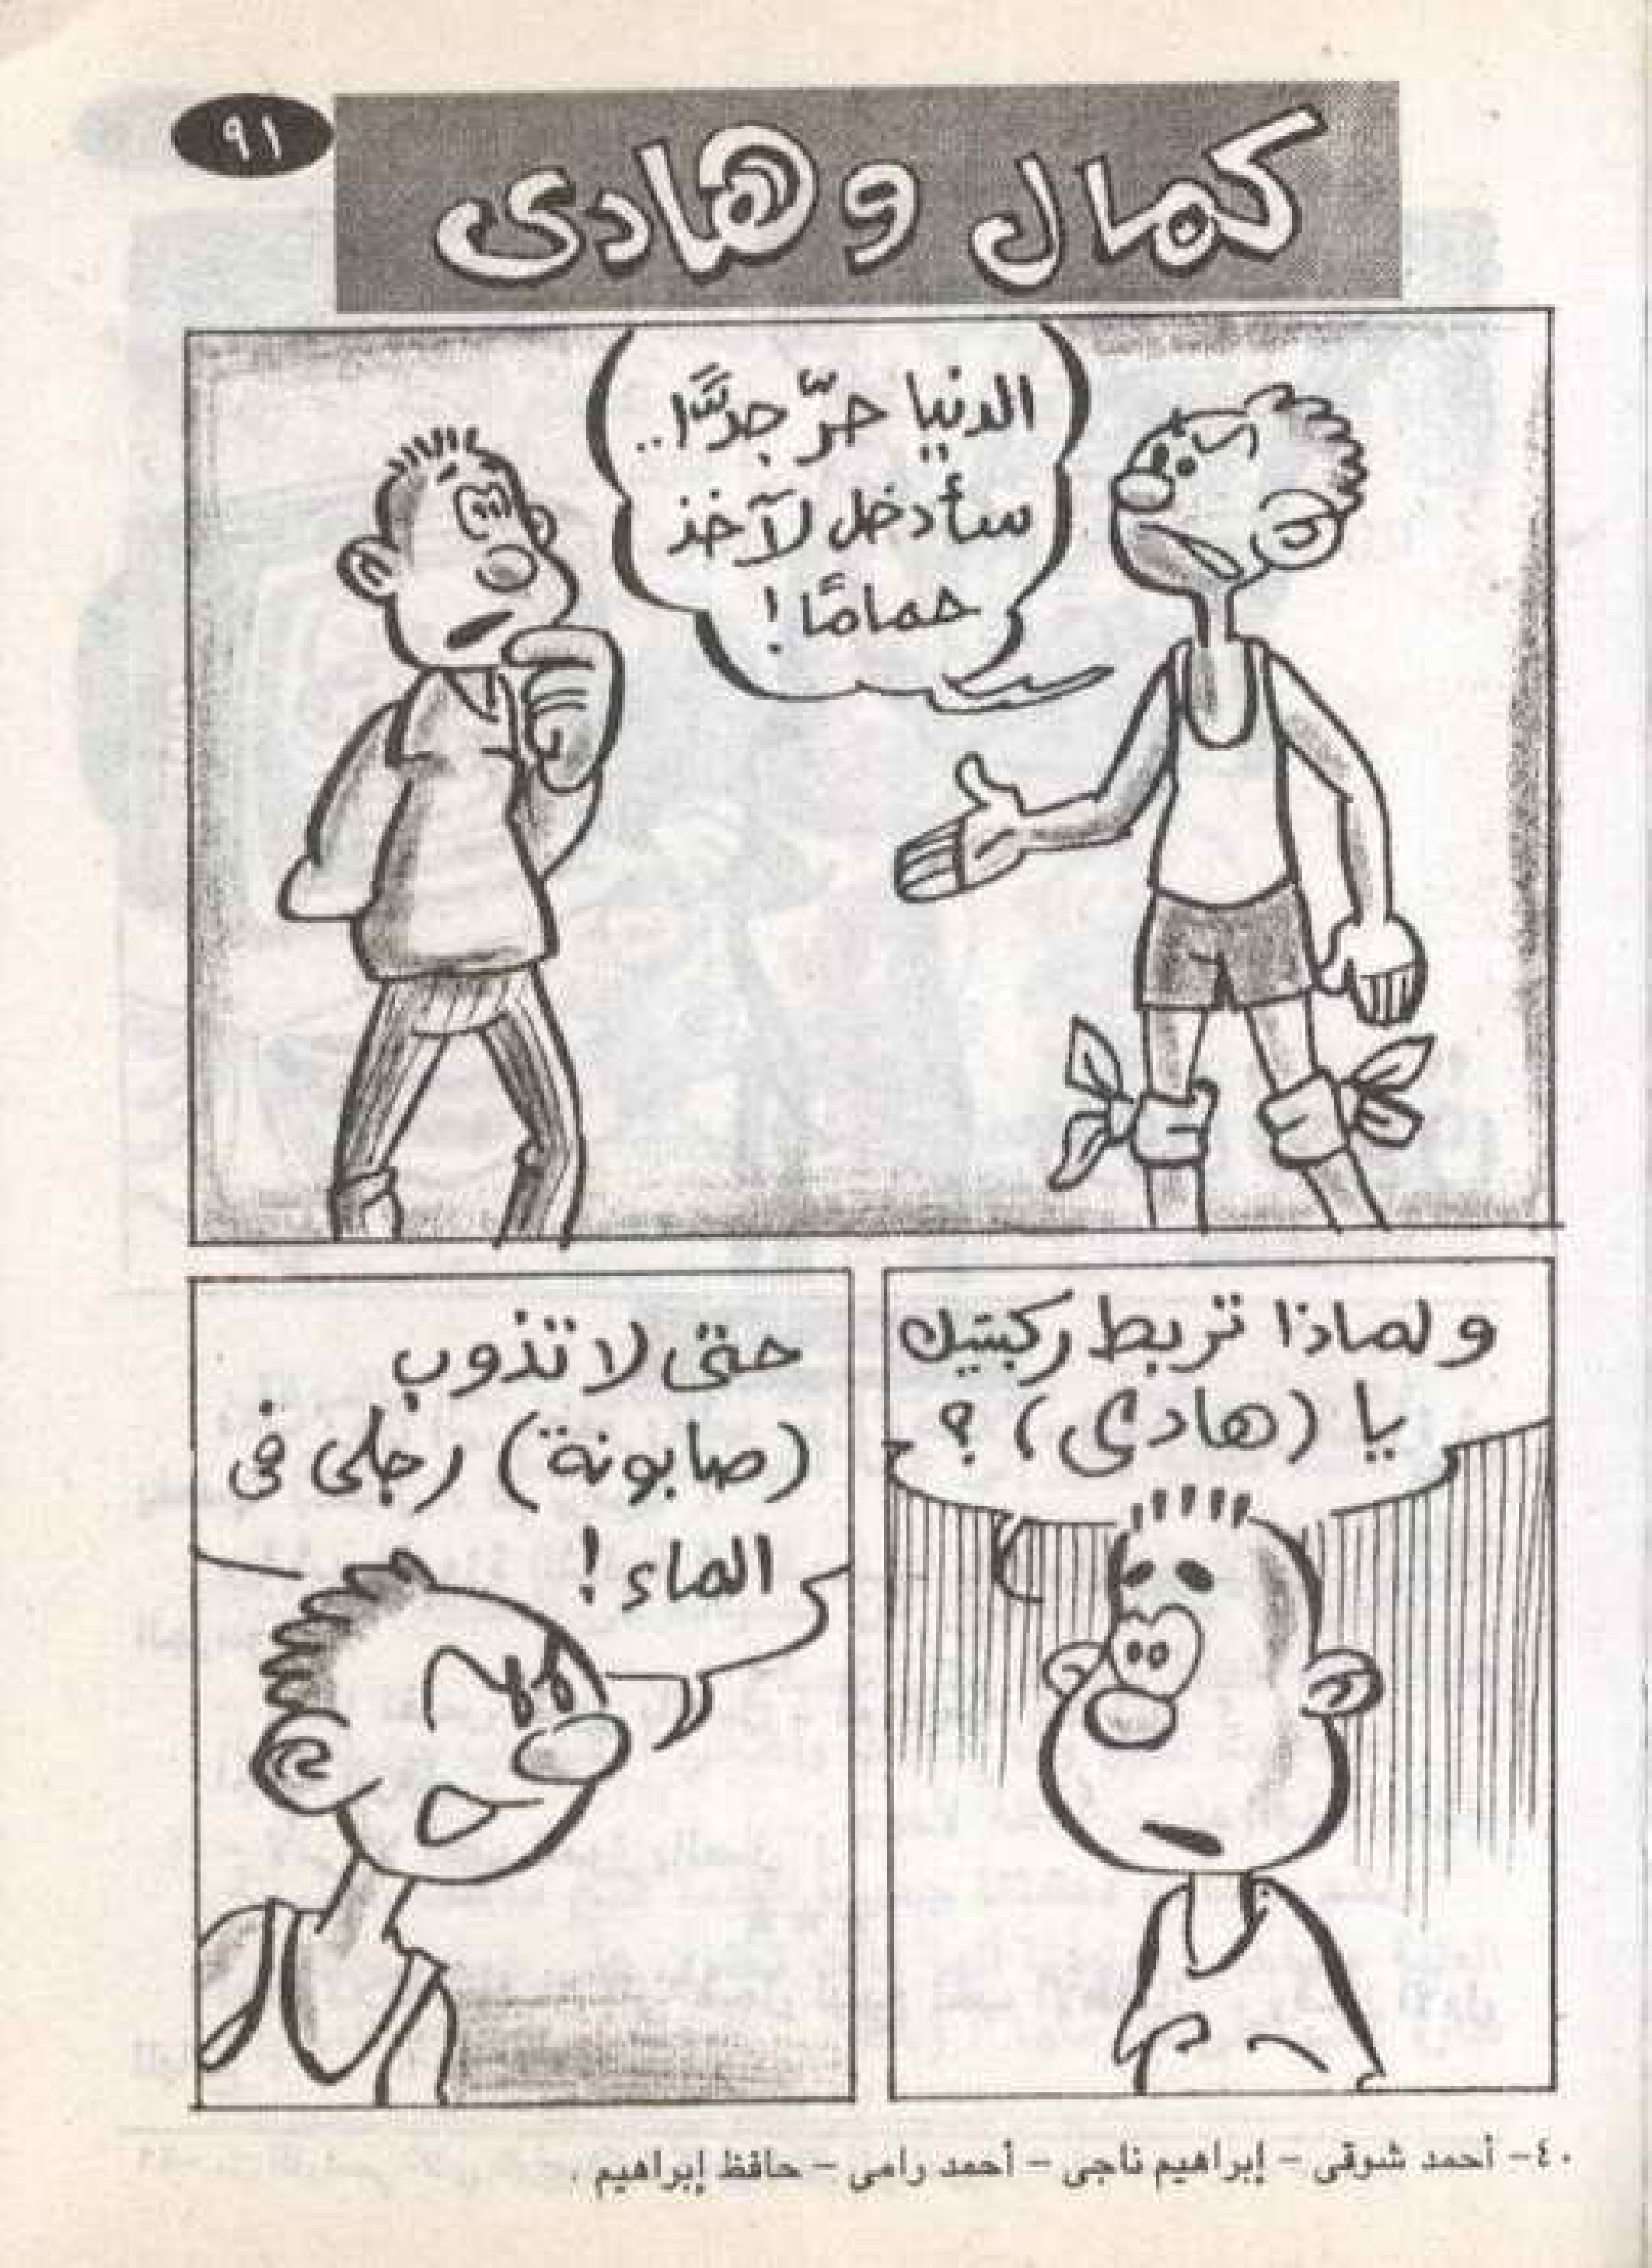 ٩١
كمال وهادى
الدنيا حرّ جدًّا..
سأدخل لآخذ
حمامًا!
ولماذا تربط ركبتيك
يا (هادى)؟
حتى لا تذوب
(صابونة) رجلى فى
الماء!
٤٠- أحمد شوقى - إبراهيم ناجى - أحمد رامى - حافظ إبراهيم.